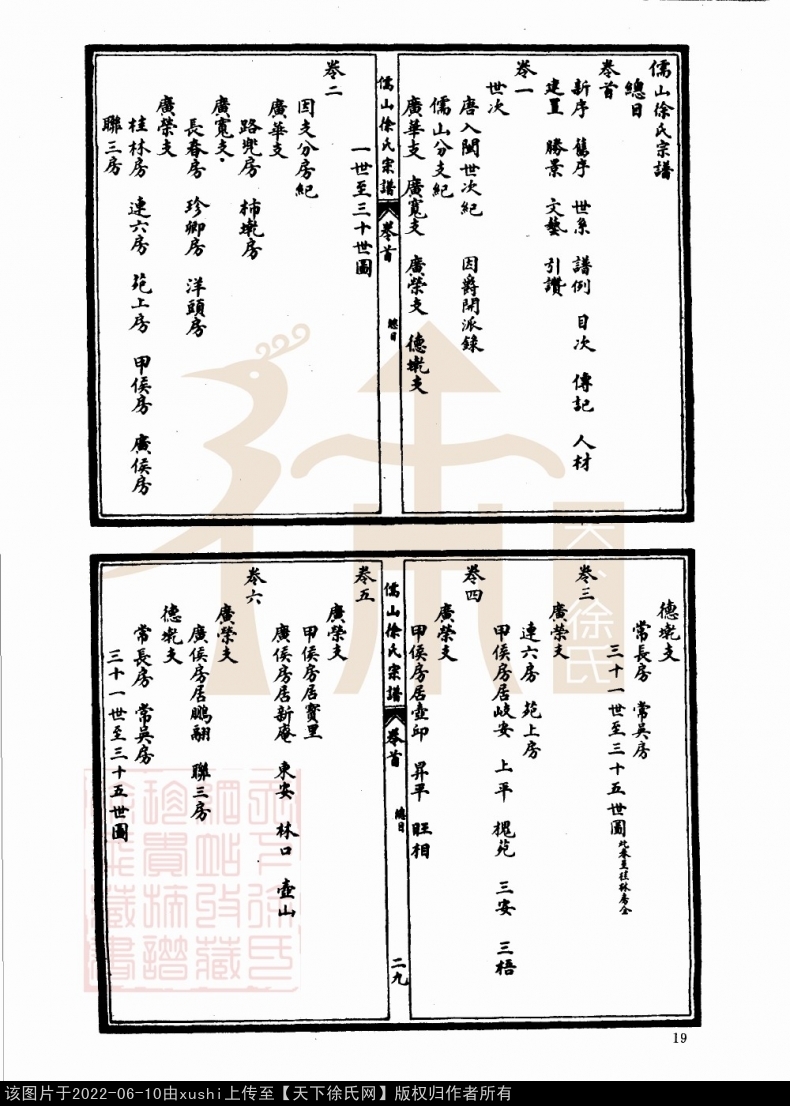 儒山徐氏宗譜
總目
卷首
新序 舊序 世系 譜例 目次 傳記 人材
建置 勝景 文藝 引讚
卷一
世次
唐入閩世次紀 因爵開派錄
儒山分支紀
廣華支 廣寬支 廣榮支 德墘支
儒山徐氏宗譜 卷首 總目
一世至三十世圖
卷二
因支分房紀
廣華支
路兜房 柿墘房
廣寬支
長春房 珍卿房 洋頭房
廣榮支
桂林房 連六房 苑上房 甲侯房 廣侯房
聯三房
德墘支
常長房 常吳房
三十一世至三十五世圖
卷三
廣榮支
連六房 苑上房
甲侯房居岐安 上平 槐苑 三安 三梧
卷四
廣榮支
甲侯房居壺印 昇平 旺相
儒山徐氏宗譜 卷首 總目 二九
卷五
廣榮支
甲侯房居寶里
廣侯房居新庵 東安 林口 壺山
卷六
廣榮支
廣侯房居鵬翮 聯三房
德墘支
常長房 常吳房
三十一世至三十五世圖
19
天下徐氏
该图片于2022-06-10由xushi上传至【天下徐氏网】版权归作者所有